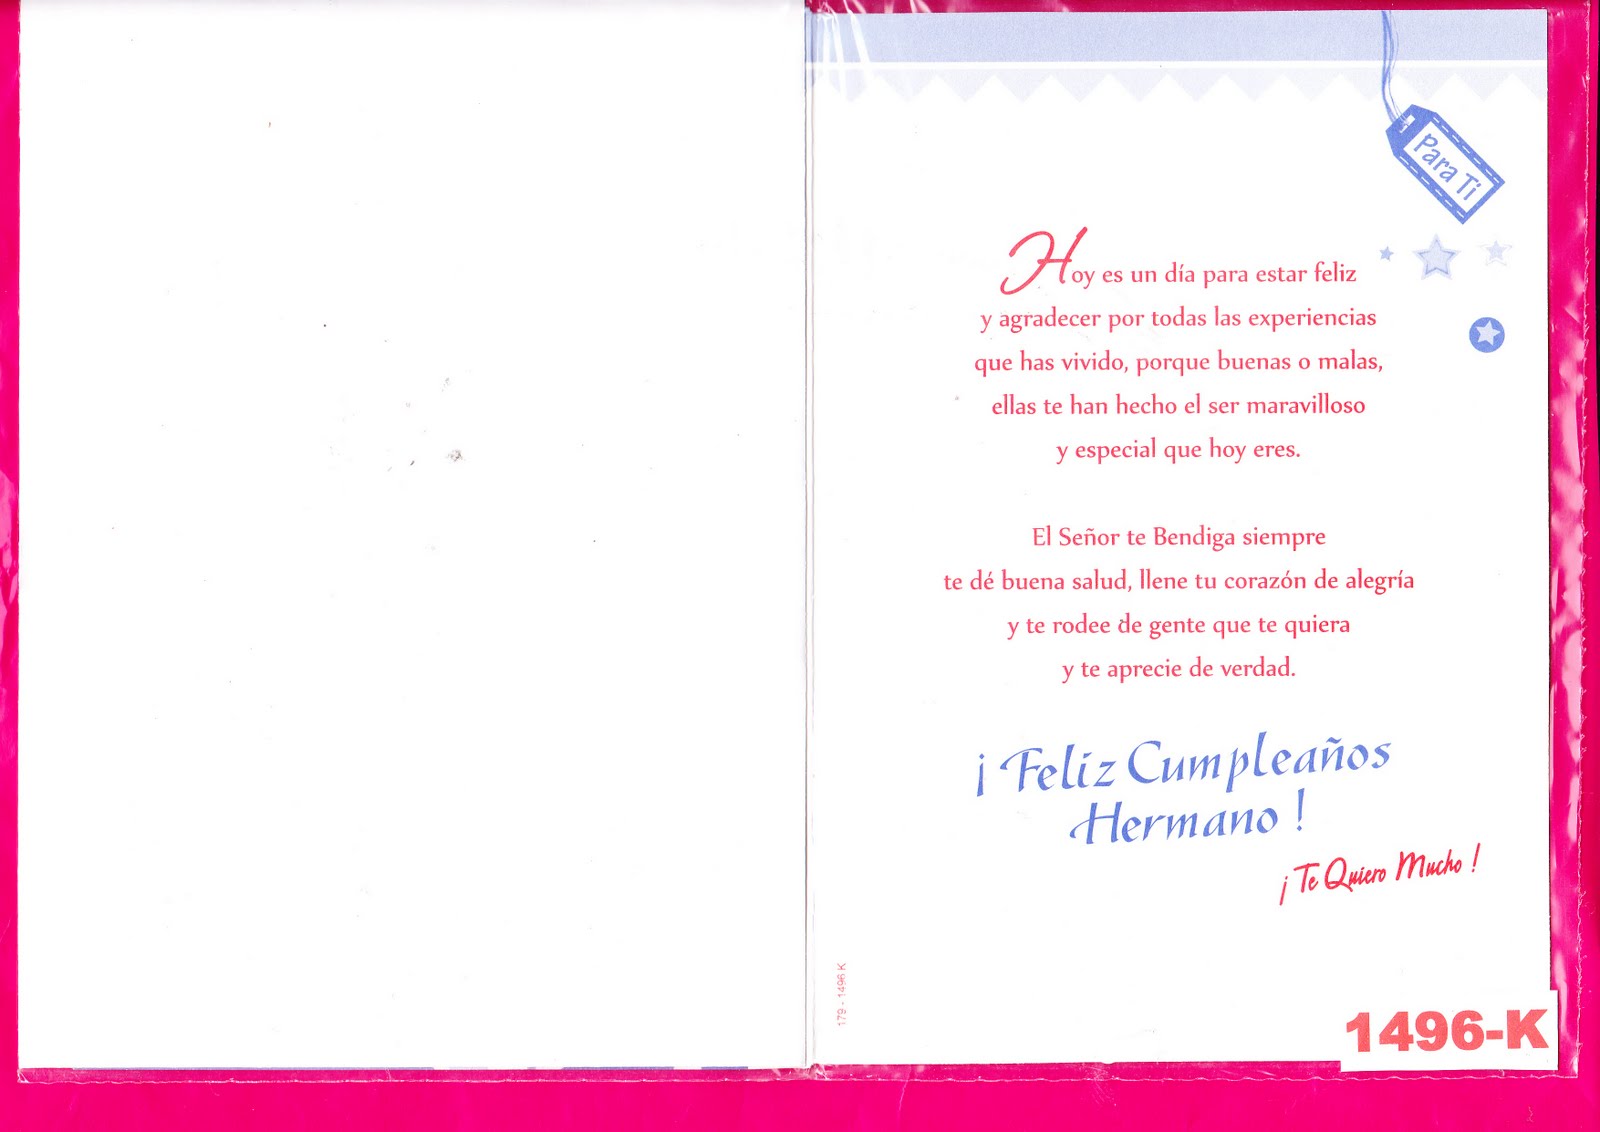 Para Ti
Hoy es un día para estar feliz
y agradecer por todas las experiencias
que has vivido, porque buenas o malas,
ellas te han hecho el ser maravilloso
y especial que hoy eres.
El Señor te Bendiga siempre
te dé buena salud, llene tu corazón de alegría
y te rodee de gente que te quiera
y te aprecie de verdad.
¡Feliz Cumpleaños
Hermano!
¡Te Quiero Mucho!
179 - 1496 K
1496-K